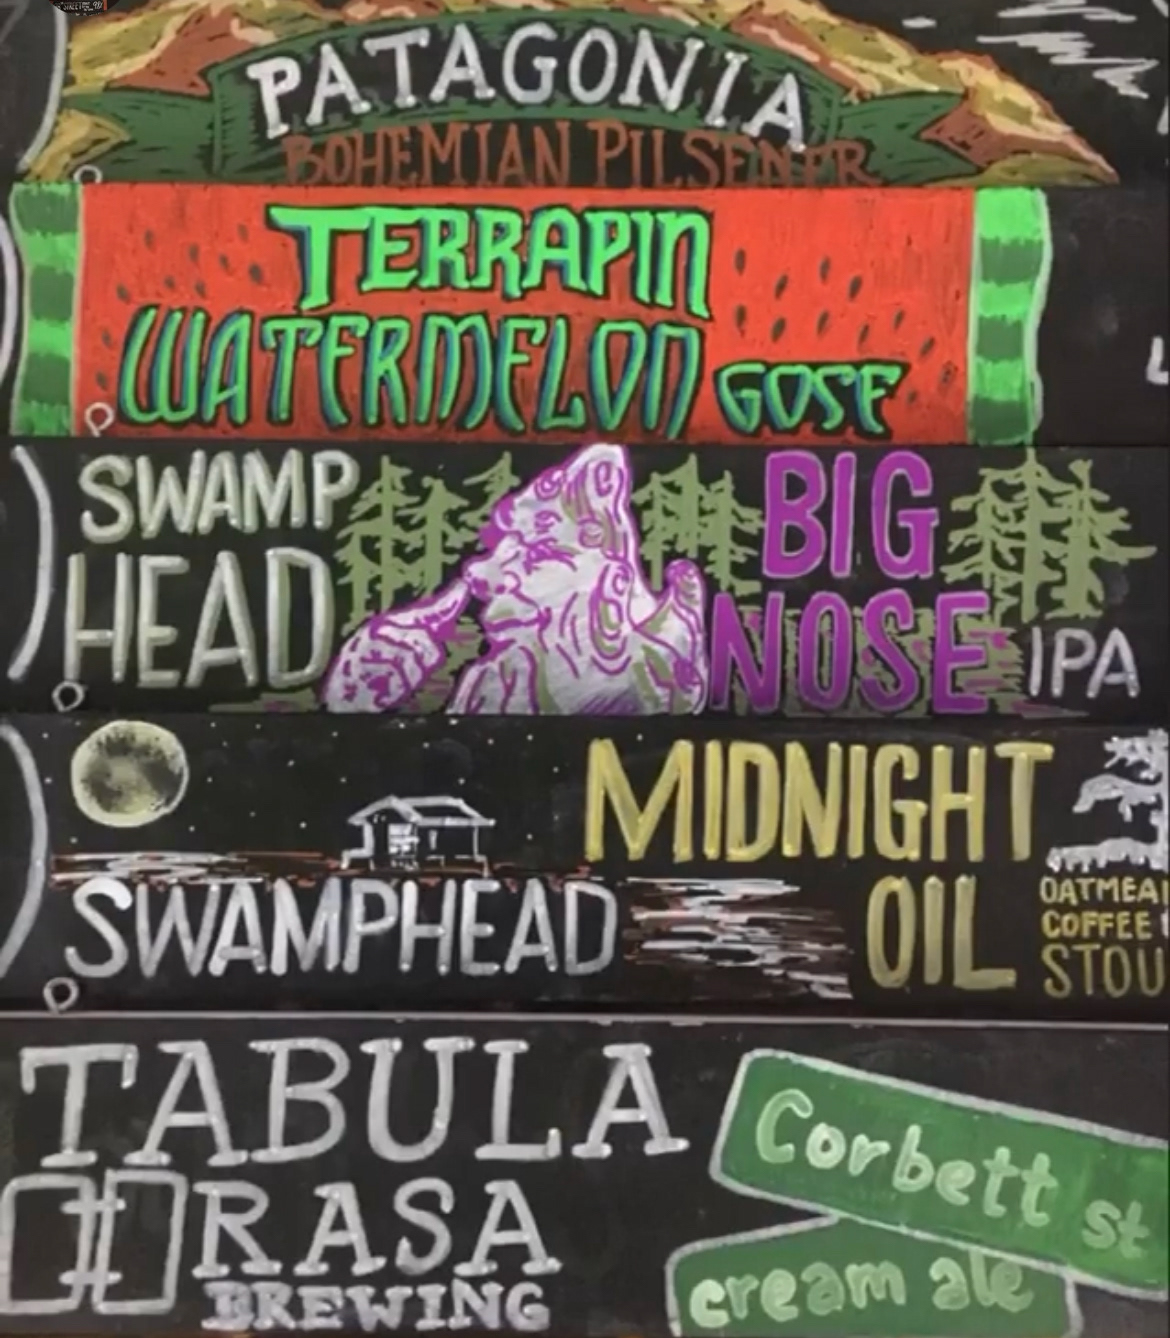 PATAGONIA
BOHEMIAN PILSENER
TERRAPIN
WATERMELON GOSE
SWAMP
HEAD
BIG
NOSE IPA
MIDNIGHT
OIL
SWAMPHEAD
OATMEAL
COFFEE
STOU
TABULA
RASA
BREWING
Corbett st
cream ale